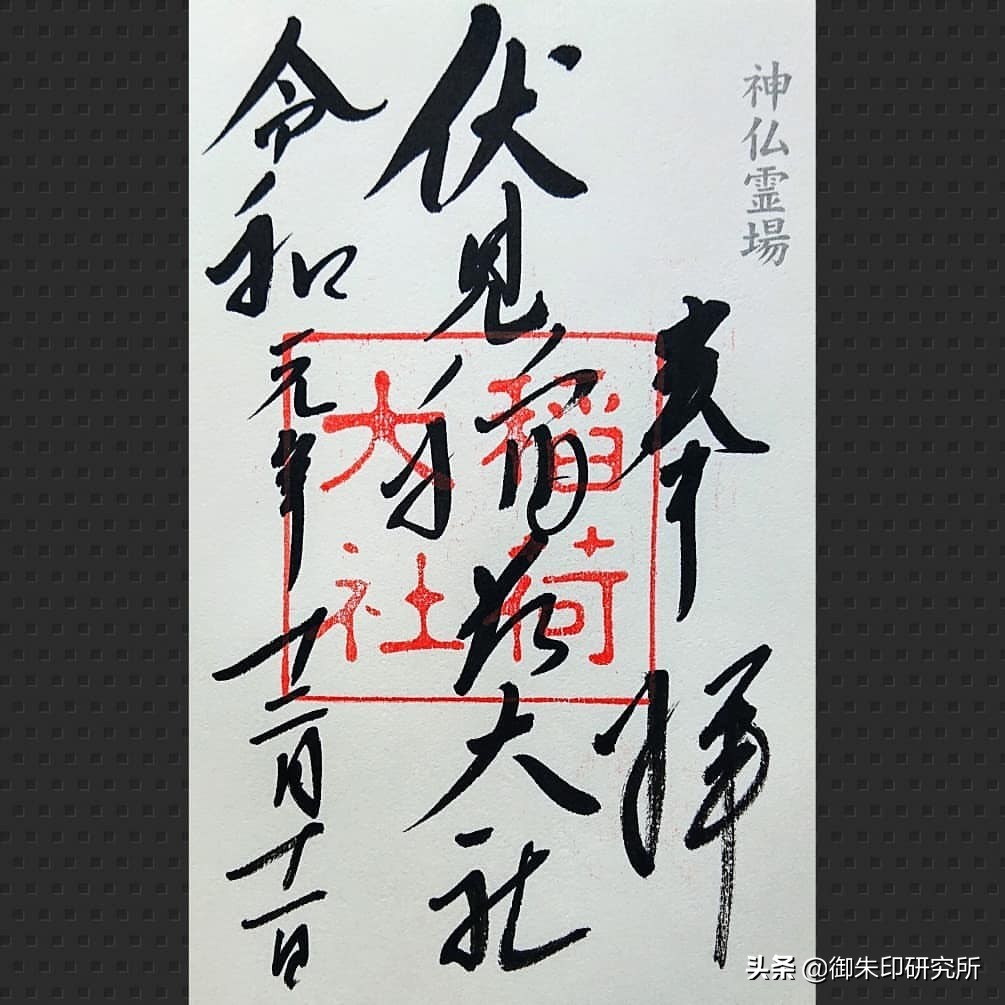 神仏霊場
奉拝
伏見稲荷大社
稲荷
大社
令和元年十二月十一日
头条 @御朱印研究所